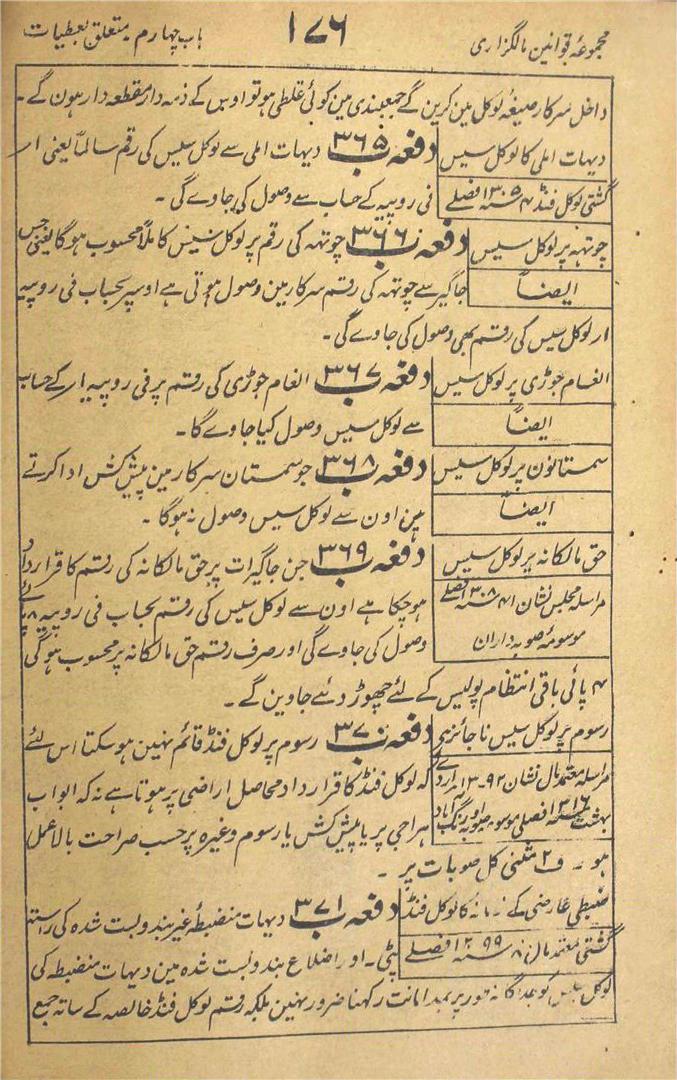 مجموعۂ قوانین مالگزاری
۱۷۶
باب چہارم متعلق بعطیات
داخل سرکار صیغۂ لوکل مین کرین گے جمعبندی مین کوئی غلطی ہو تو اوس کے ذمہ دار مقطعہ دار ہون گے ۔
دیہات املی کا لوکل سیس
دفعہ ۳۶۵ ب دیہات املی سے لوکل سیس کی رقم سالماً یعنی ار
گشتی لوکل فنڈ
فی روپیہ کے حساب سے وصول کی جاوے گی ۔
چوتہہ پر لوکل سیس
دفعہ ۳۶۶ ب چوتہہ کی رقم پر لوکل سیس کاملاً محسوب ہوگا یعنی جس
ایضاً
جاگیر سے چوتہہ کی رقم سرکار مین وصول ہوتی ہے اوسپر بحساب فی روپیہ
ار لوکل سیس کی رقم بھی وصول کی جاوے گی ۔
انعام جوڑی پر لوکل سیس
دفعہ ۳۶۷ ب انعام جوڑی کی رقم پر فی روپیہ ار کے حساب
ایضاً
سے لوکل سیس وصول کیا جاوے گا ۔
سمستانون پر لوکل سیس
دفعہ ۳۶۸ ب جو سمستان سرکار مین پیشکش ادا کرتے
ایضاً
ہین اون سے لوکل سیس وصول نہ ہوگا ۔
حق مالکانہ پر لوکل سیس
دفعہ ۳۶۹ ب جن جاگیرات پر حق مالکانہ کی رقم کا قرار داد
مراسلہ مجلس نشان
ہوچکا ہے اون سے لوکل سیس کی رقم بحساب فی روپیہ
موسومۂ صوبہ داران
وصول کی جاوے گی اور صرف رقم حق مالکانہ پر محسوب ہوگی
۴ پائی باقی انتظام پولیس کے لئے چھوڑ دئیے جاوین گے ۔
رسوم پر لوکل سیس ناجائز ہے
دفعہ ۳۷۰ ب رسوم پر لوکل فنڈ قائم نہین ہوسکتا اس لئے
مراسلہ معتمد مال نشان
کہ لوکل فنڈ کا قرار داد محاصل اراضی پر ہوتا ہے نہ کہ ابواب
ہراجی پر یا پیشکش یا رسوم وغیرہ پر حسب صراحت بالا عمل
ہو ۔ ف ۲ مثنیٰ کل صوبات پر ۔
ضبطی عارضی کے زمانہ کا لوکل فنڈ
دفعہ ۳۷۱ ب دیہات منضبطۂ غیر بندوبست شدہ کی راستہ
گشتی معتمد مال
پٹی ۔ اور اضلاع بندوبست شدہ مین دیہات منضبطہ کی
لوکل سیس کو جداگانہ طور پر بمد امانت رکہنا ضرور نہین بلکہ رقم لوکل فنڈ خالصہ کے ساتہ جمع